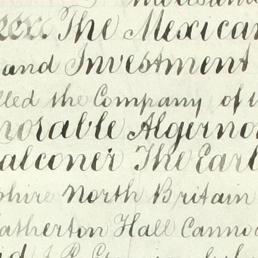 The Mexican
and Investment
lled the Company of t
norable Algerno
alconer The Earl
shire North Britain
atherton Hall Canno